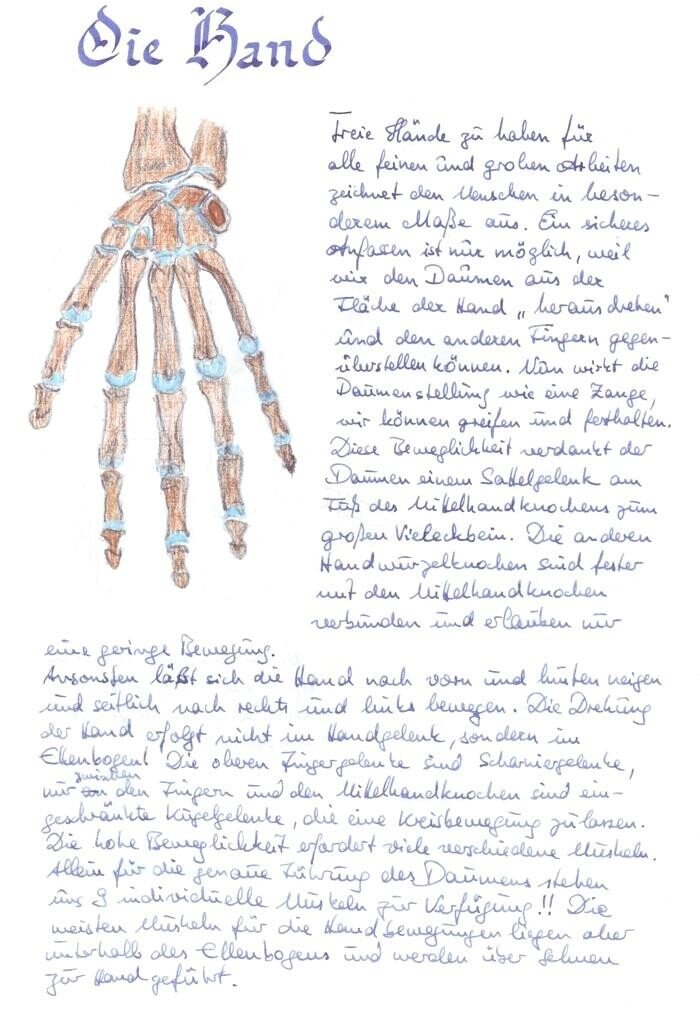 Die Hand
Freie Hände zu haben für
alle feinen und groben Arbeiten
zeichnet den Menschen in beson-
derem Maße aus. Ein sicheres
Anfassen ist nur möglich, weil
wir den Daumen aus der
Fläche der Hand „herausdrehen"
und den anderen Fingern gegen-
überstellen können. Nun wirkt die
Daumenstellung wie eine Zange,
wir können greifen und festhalten.
Diese Beweglichkeit verdankt der
Daumen einem Sattelgelenk am
Fuß des Mittelhandknochens zum
großen Vieleckbein. Die anderen
Handwurzelknochen sind fester
mit den Mittelhandknochen
verbunden und erlauben nur
eine geringe Bewegung.
Ansonsten läßt sich die Hand nach vorn und hinten neigen
und seitlich nach rechts und links bewegen. Die Drehung
der Hand erfolgt nicht im Handgelenk, sondern im
Ellenbogen! Die oberen Fingergelenke sind Scharniergelenke,
nur zwischen den Fingern und den Mittelhandknochen sind ein-
geschränkte Kugelgelenke, die eine Kreisbewegung zulassen.
Die hohe Beweglichkeit erfordert viele verschiedene Muskeln.
Allein für die genaue Führung des Daumens stehen
uns 9 individuelle Muskeln zur Verfügung!! Die
meisten Muskeln für die Handbewegungen liegen aber
unterhalb des Ellenbogens und werden über Sehnen
zur Hand geführt.